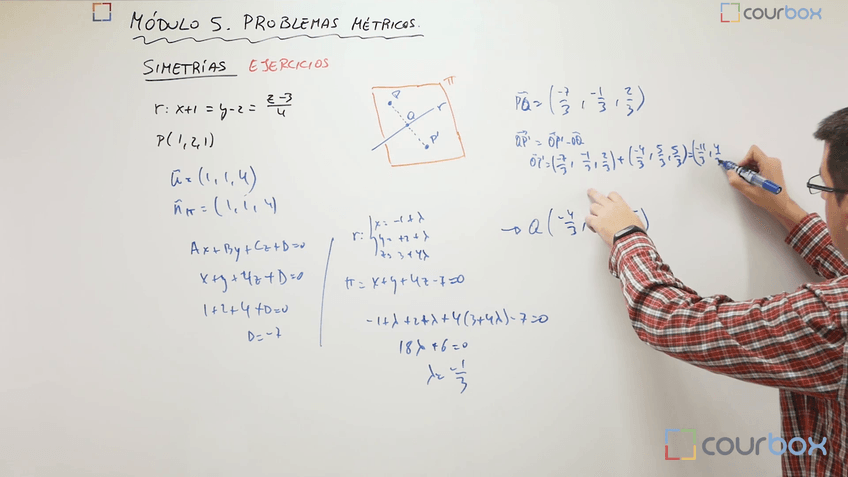 MÓDULO 5. PROBLEMAS MÉTRICOS.
courbox
SIMETRÍAS EJERCICIOS
r: x+1 = y-2 = (z-3)/4
P(1,2,1)
ū = (1,1,4)
n̄π = (1,1,4)
Ax+By+Cz+D=0
x+y+4z+D=0
1+2+4+D=0
D=-7
π
P
Q
r
P'
r: x = -1+λ
y = +2+λ
z = 3+4λ
π = x+y+4z-7=0
-1+λ+2+λ+4(3+4λ)-7=0
18λ+6=0
λ = -1/3
PQ = (-7/3, -1/3, 2/3)
QP' = OP'-OQ
OP' = (-7/3, -1/3, 2/3) + (-4/3, 5/3, 5/3) = (-11/3, 4
→ Q (-4/3,
courbox